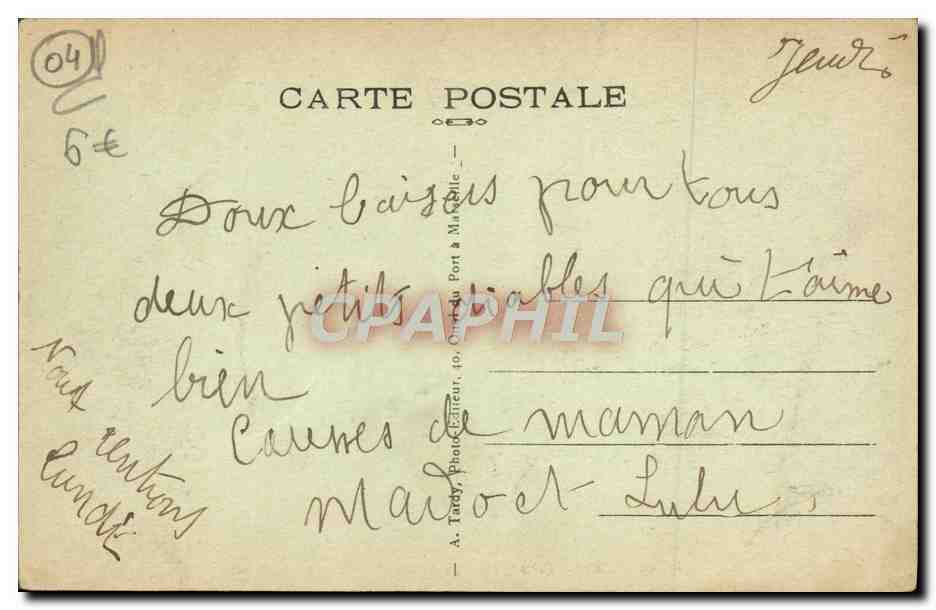 04
6€
Jeudi
CARTE POSTALE
Doux baisers pour tous
deux petits diables qui t'aime
bien
Causses de maman
et Lulu
Nous
rentrons
Lundi
A. Tardy, Photo-Editeur, 40, Quai du Port à Marseille
CPAPHIL